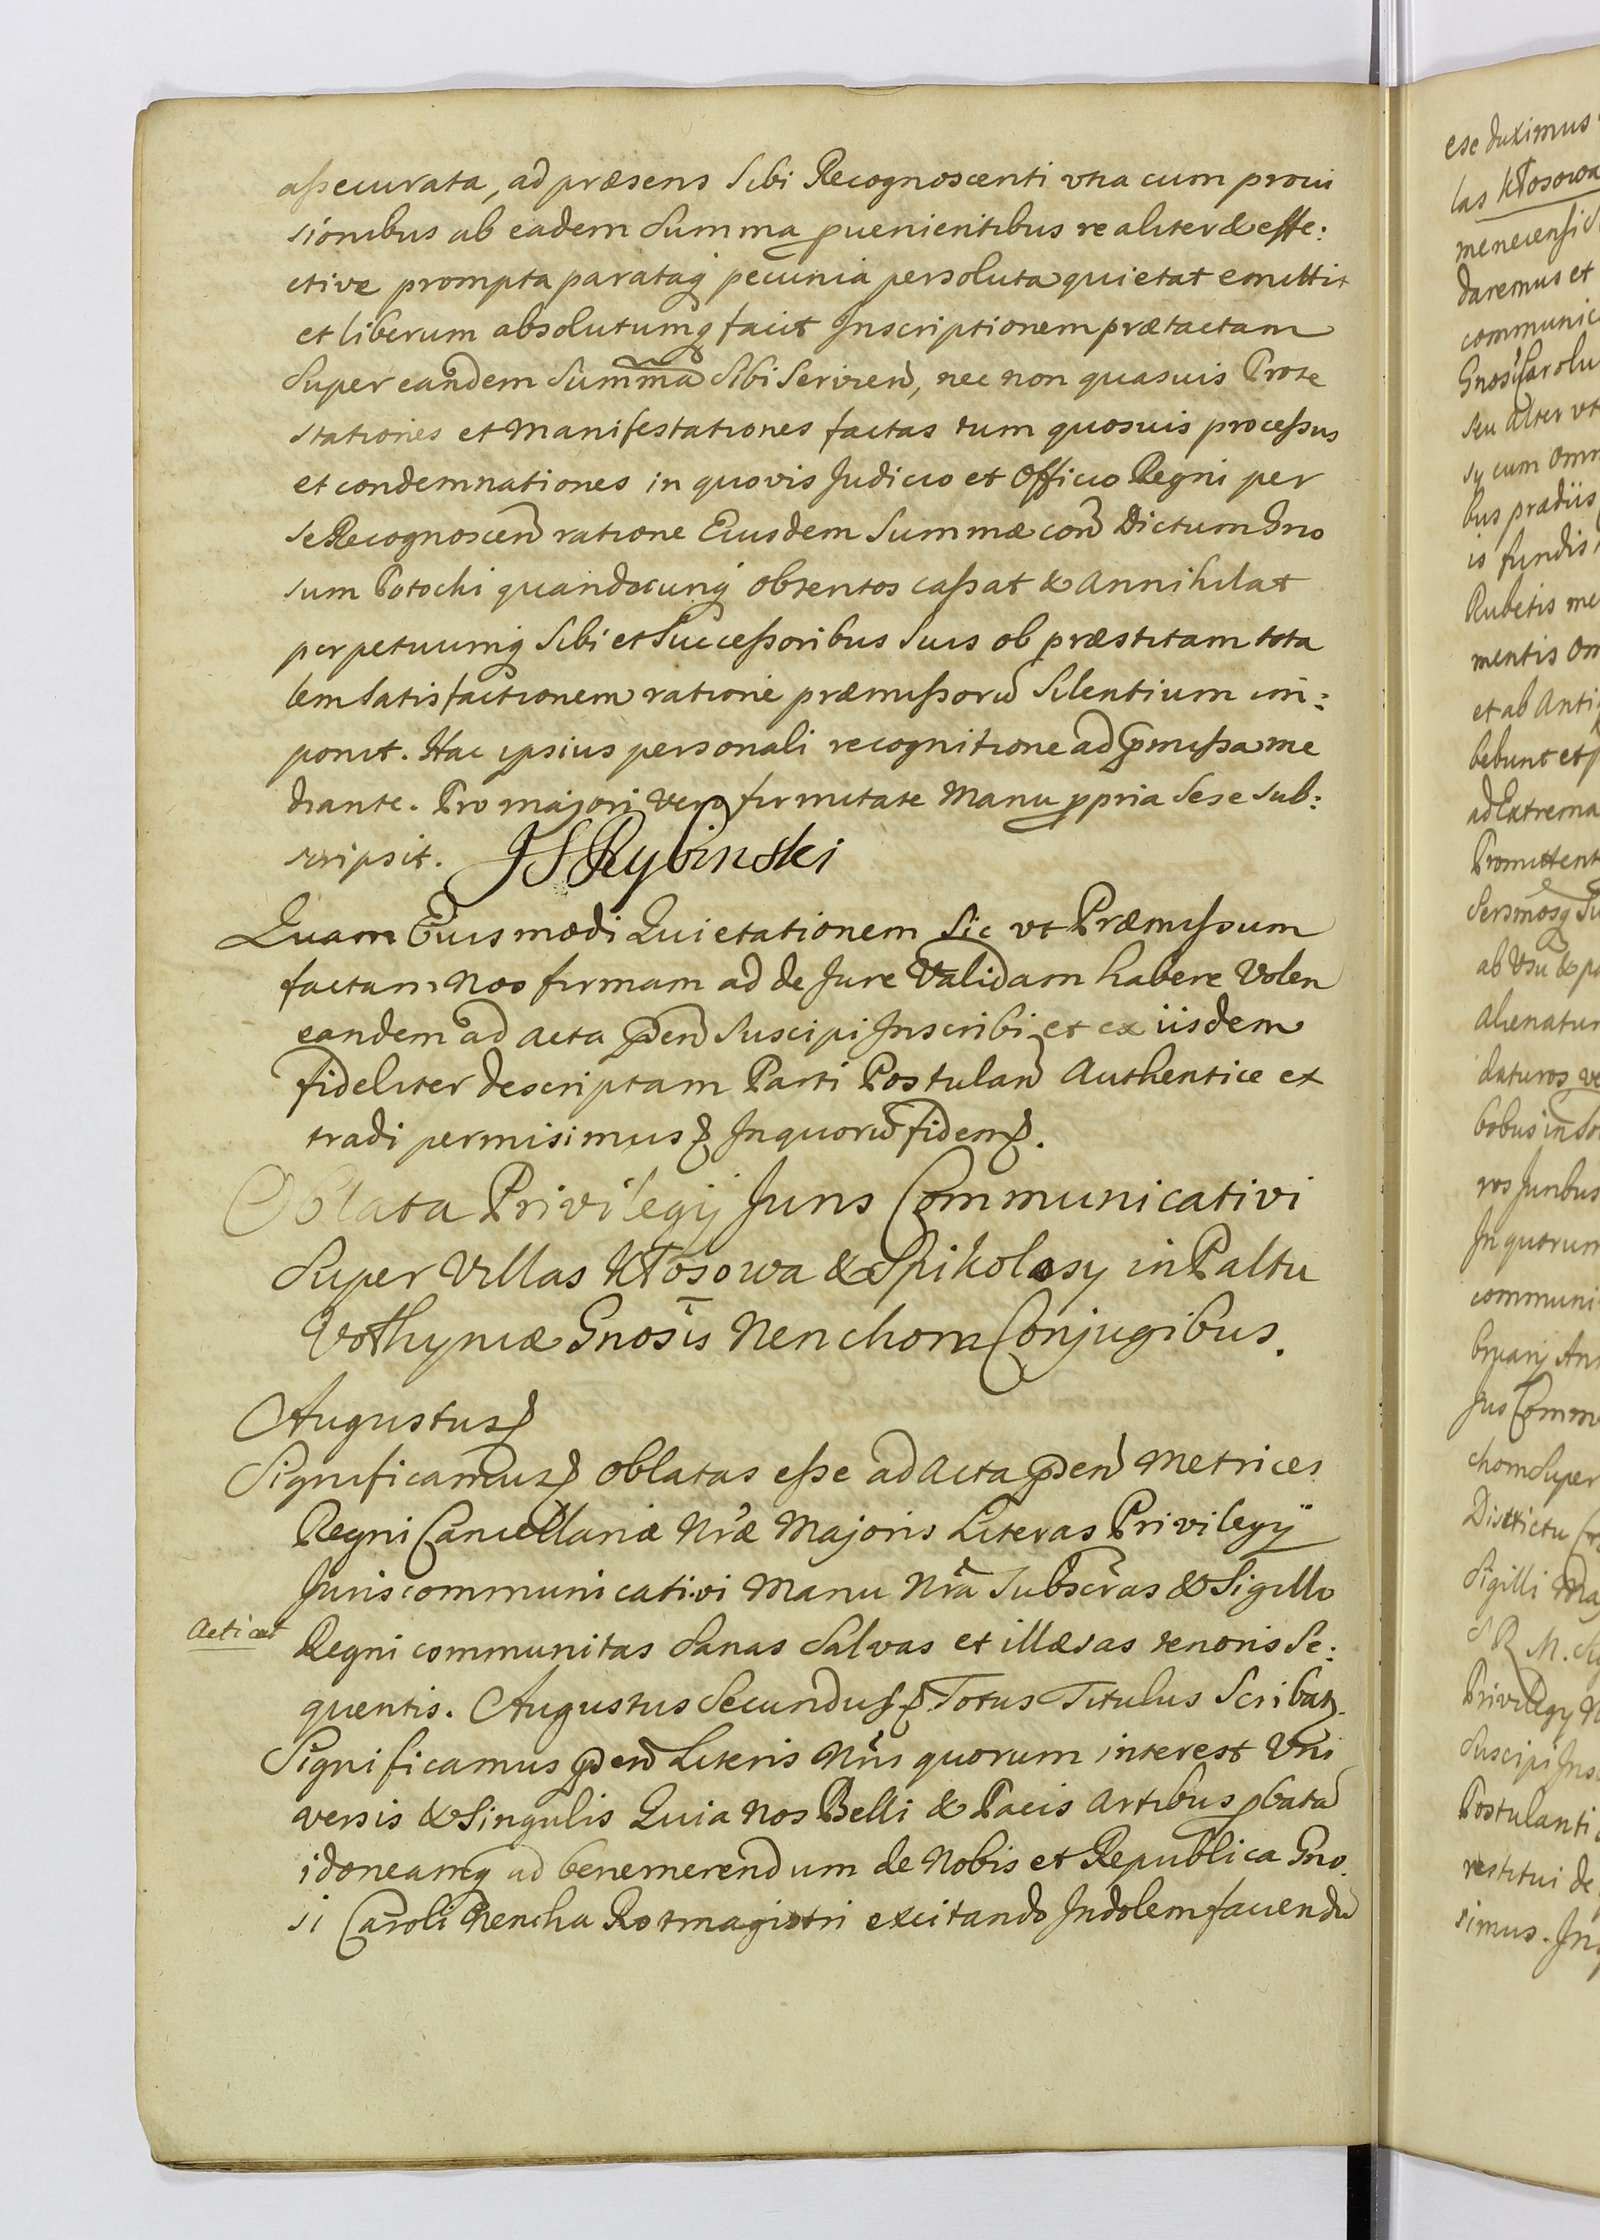 assecurata, ad præsens Sibi Recognoscenti vna cum proui
sionibus ab eadem Summa puenientibus realiter & effe:
ctive prompta parataq pecunia persoluta quietat emittit
et liberum absolutumq facit Inscriptionem prætactam
Super eandem Summa Sibi Servien, nec non quasuis Prote
stationes et Manifestationes factas tum quosuis processus
et condemnationes in quovis Judicio et Officio Regni per
se Recognoscen ratione Eiusdem Summæ con Dictum Gno
sum Potocki quandocunq obtentos cassat & Annihilat
perpetuumq Sibi et Successoribus Suis ob præstitam tota
lem Satisfactionem ratione præmissoru Silentium im:
ponit. Hac ipsius personali recognitione ad pmissa me
diante. Pro majori vero firmitate Manu ppria Sese Sub:
scripsit. JSRybinski
Quam Eiusmodi Quietationem Sic vt Præmissum
factam Nos firmam ad de Jure Validam habere Volen
eandem ad Acta pden Suscipi Inscribi et ex iisdem
fideliter descriptam Parti Postulan Authentice et
tradi permisimus In quoru fidem.
Oblata Privilegij Juris Communicativi
Super Villas Kłosowa & Spikolosy in Paltu
Vołhyniæ Gnosis Nenchom Conjugibus.
Augustus
Significamus oblatas esse ad Acta pden Metrices
Regni Cancellariæ Nræ Majoris Literas Privilegÿ
Juris communicativi Manu Nra Subscras & Sigillo
Acticat Regni communitas Sanas Salvas et illæsas tenoris Se:
quentis. Augustus Secundus Totus Titulus Scribat.
Significamus pden Literis Nris quorum interest Vni
versis & Singulis Quia Nos Belli & Pacis Artibus pbata
idoneamq ad benemerendum de Nobis et Republica Gno
si Caroli Nencha Rotmagistri excitando Indolem favendu
ese duximus
las Kłosowa
daremus et
Seu alter vt
sy cum Omn
bus prædiis
is fundis
Rubetis me
mentis Om
et ab Anti
bebunt et p
ad Extrema
Promittent
daturos ve
ros Juribus
In quorum
communi
Jus Comm
chom Super
Sigilli Ma
Privilegy N
Suscipi Ins
Postulanti
restitui de
simus. In